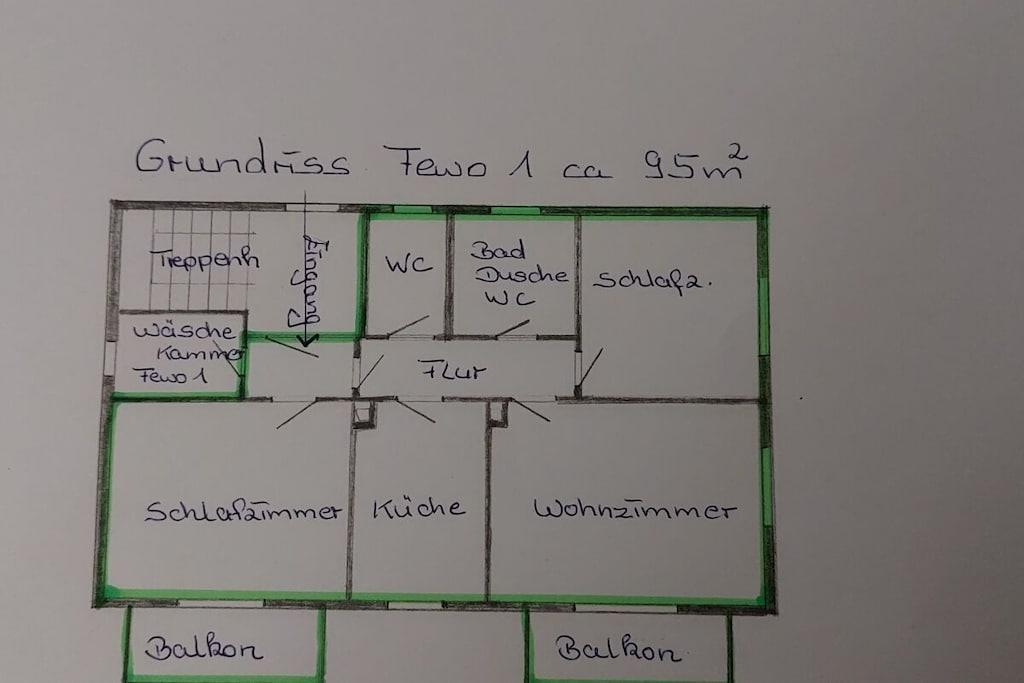 Grundriss Fewo 1 ca 95m²
Treppenh
Eingang
WC
Bad
Dusche
WC
Schlafz.
Wäsche
Kammer
Fewo 1
Flur
Schlafzimmer
Küche
Wohnzimmer
Balkon
Balkon